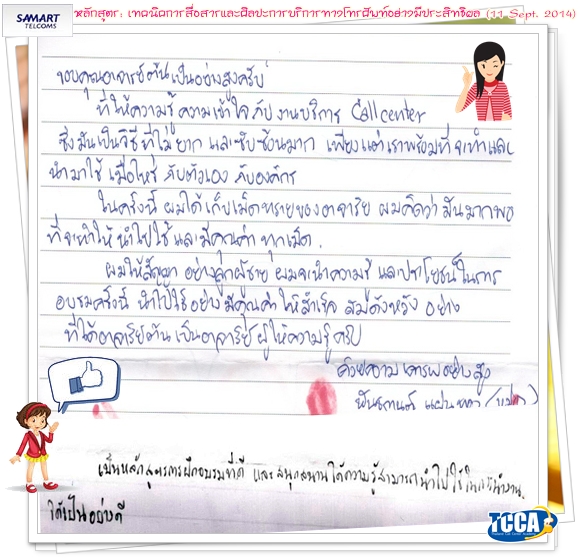 SAMART
TELCOMS
หลักสูตร: เทคนิคการสื่อสารและศิลปะการบริการทางโทรศัพท์อย่างมีประสิทธิผล (11 Sept. 2014)
ขอบคุณอาจารย์ต้นเป็นอย่างสูงครับ
ที่ให้ความรู้ความเข้าใจกับงานบริการ Callcenter
ซึ่งมันเป็นวิธีที่ไม่ยาก และซับซ้อนมาก เพียงแต่เราพร้อมที่จะทำและ
นำมาใช้ เมื่อไหร่ กับตัวเอง กับองค์กร
ในครั้งนี้ ผมได้เก็บเม็ดทรายของอาจารย์ ผมคิดว่ามันมากพอ
ที่จะทำให้ นำไปใช้และมีคุณค่า ทุกเม็ด.
ผมให้สัญญา อย่างลูกผู้ชาย ผมจะนำความรู้ และประโยชน์ในการ
อบรมครั้งนี้ นำไปใช้อย่างมีคุณค่า ให้สำเร็จ สมดังหวัง อย่าง
ที่ได้อาจารย์ต้นเป็นอาจารย์ ผู้ให้ความรู้ครับ
ด้วยความเคารพอย่างสูง
เป็นหลักสูตรการฝึกอบรมที่ดี และสนุกสนานได้ความรู้สามารถนำไปใช้ในการทำงาน
ได้เป็นอย่างดี
TCCA